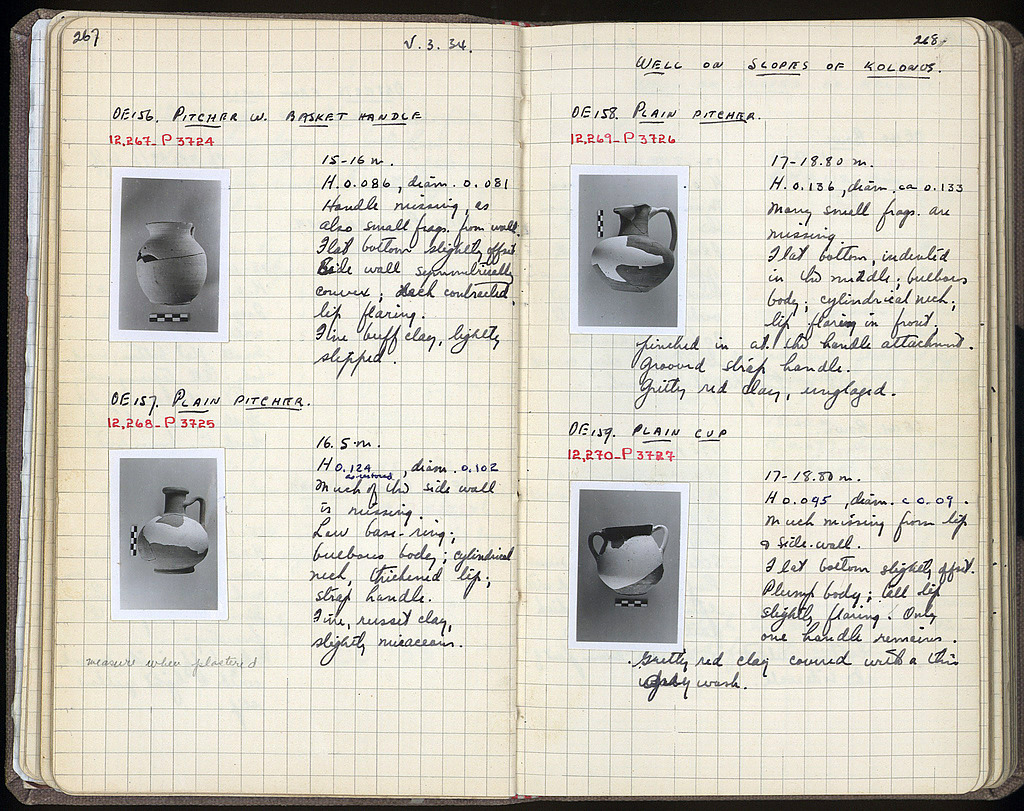 267
V. 3. 34.
OE156. PITCHER W. BASKET HANDLE
12,267- P 3724
15-16 m.
H. 0.086, diam. 0.081
Handle missing, as
also small frags. from wall.
Flat bottom slightly offset
Side wall symmetrically
convex; neck contracted,
lip flaring.
Fine buff clay, lightly
slipped.
OE157. PLAIN PITCHER.
12,268- P 3725
16.5 m.
H 0.124, diam. 0.102
as restored
Much of the side wall
is missing.
Low base-ring;
bulbous body; cylindrical
neck, thickened lip;
strap handle.
Fine, russet clay,
slightly micaceous.
measure when plastered
268
WELL ON SLOPES OF KOLONOS.
OE158. PLAIN PITCHER.
12,269- P 3726
17-18.80 m.
H. 0.136, diam. ca 0.133
Many small frags. are
missing
Flat bottom, indented
in the middle; bulbous
body; cylindrical neck;
lip flaring in front,
pinched in at the handle attachment.
Grooved strap handle.
Gritty red clay, unglazed.
OE159. PLAIN CUP
12,270- P 3727
17-18.80 m.
H 0.095, diam. c 0.09.
Much missing from lip
& side-wall.
Flat bottom slightly offset.
Plump body; tall lip
slightly flaring. Only
one handle remains.
Gritty red clay covered with a thin
wash.